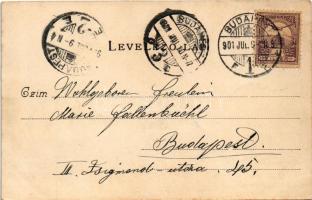 LEVELEZŐ-LAP
BUDAPEST
901 JUL. 9
Czim: Wohlgeboren Fräulein
Marie Fallenbüchl
Budapest.
II. Zsigmond-utcza. 45.